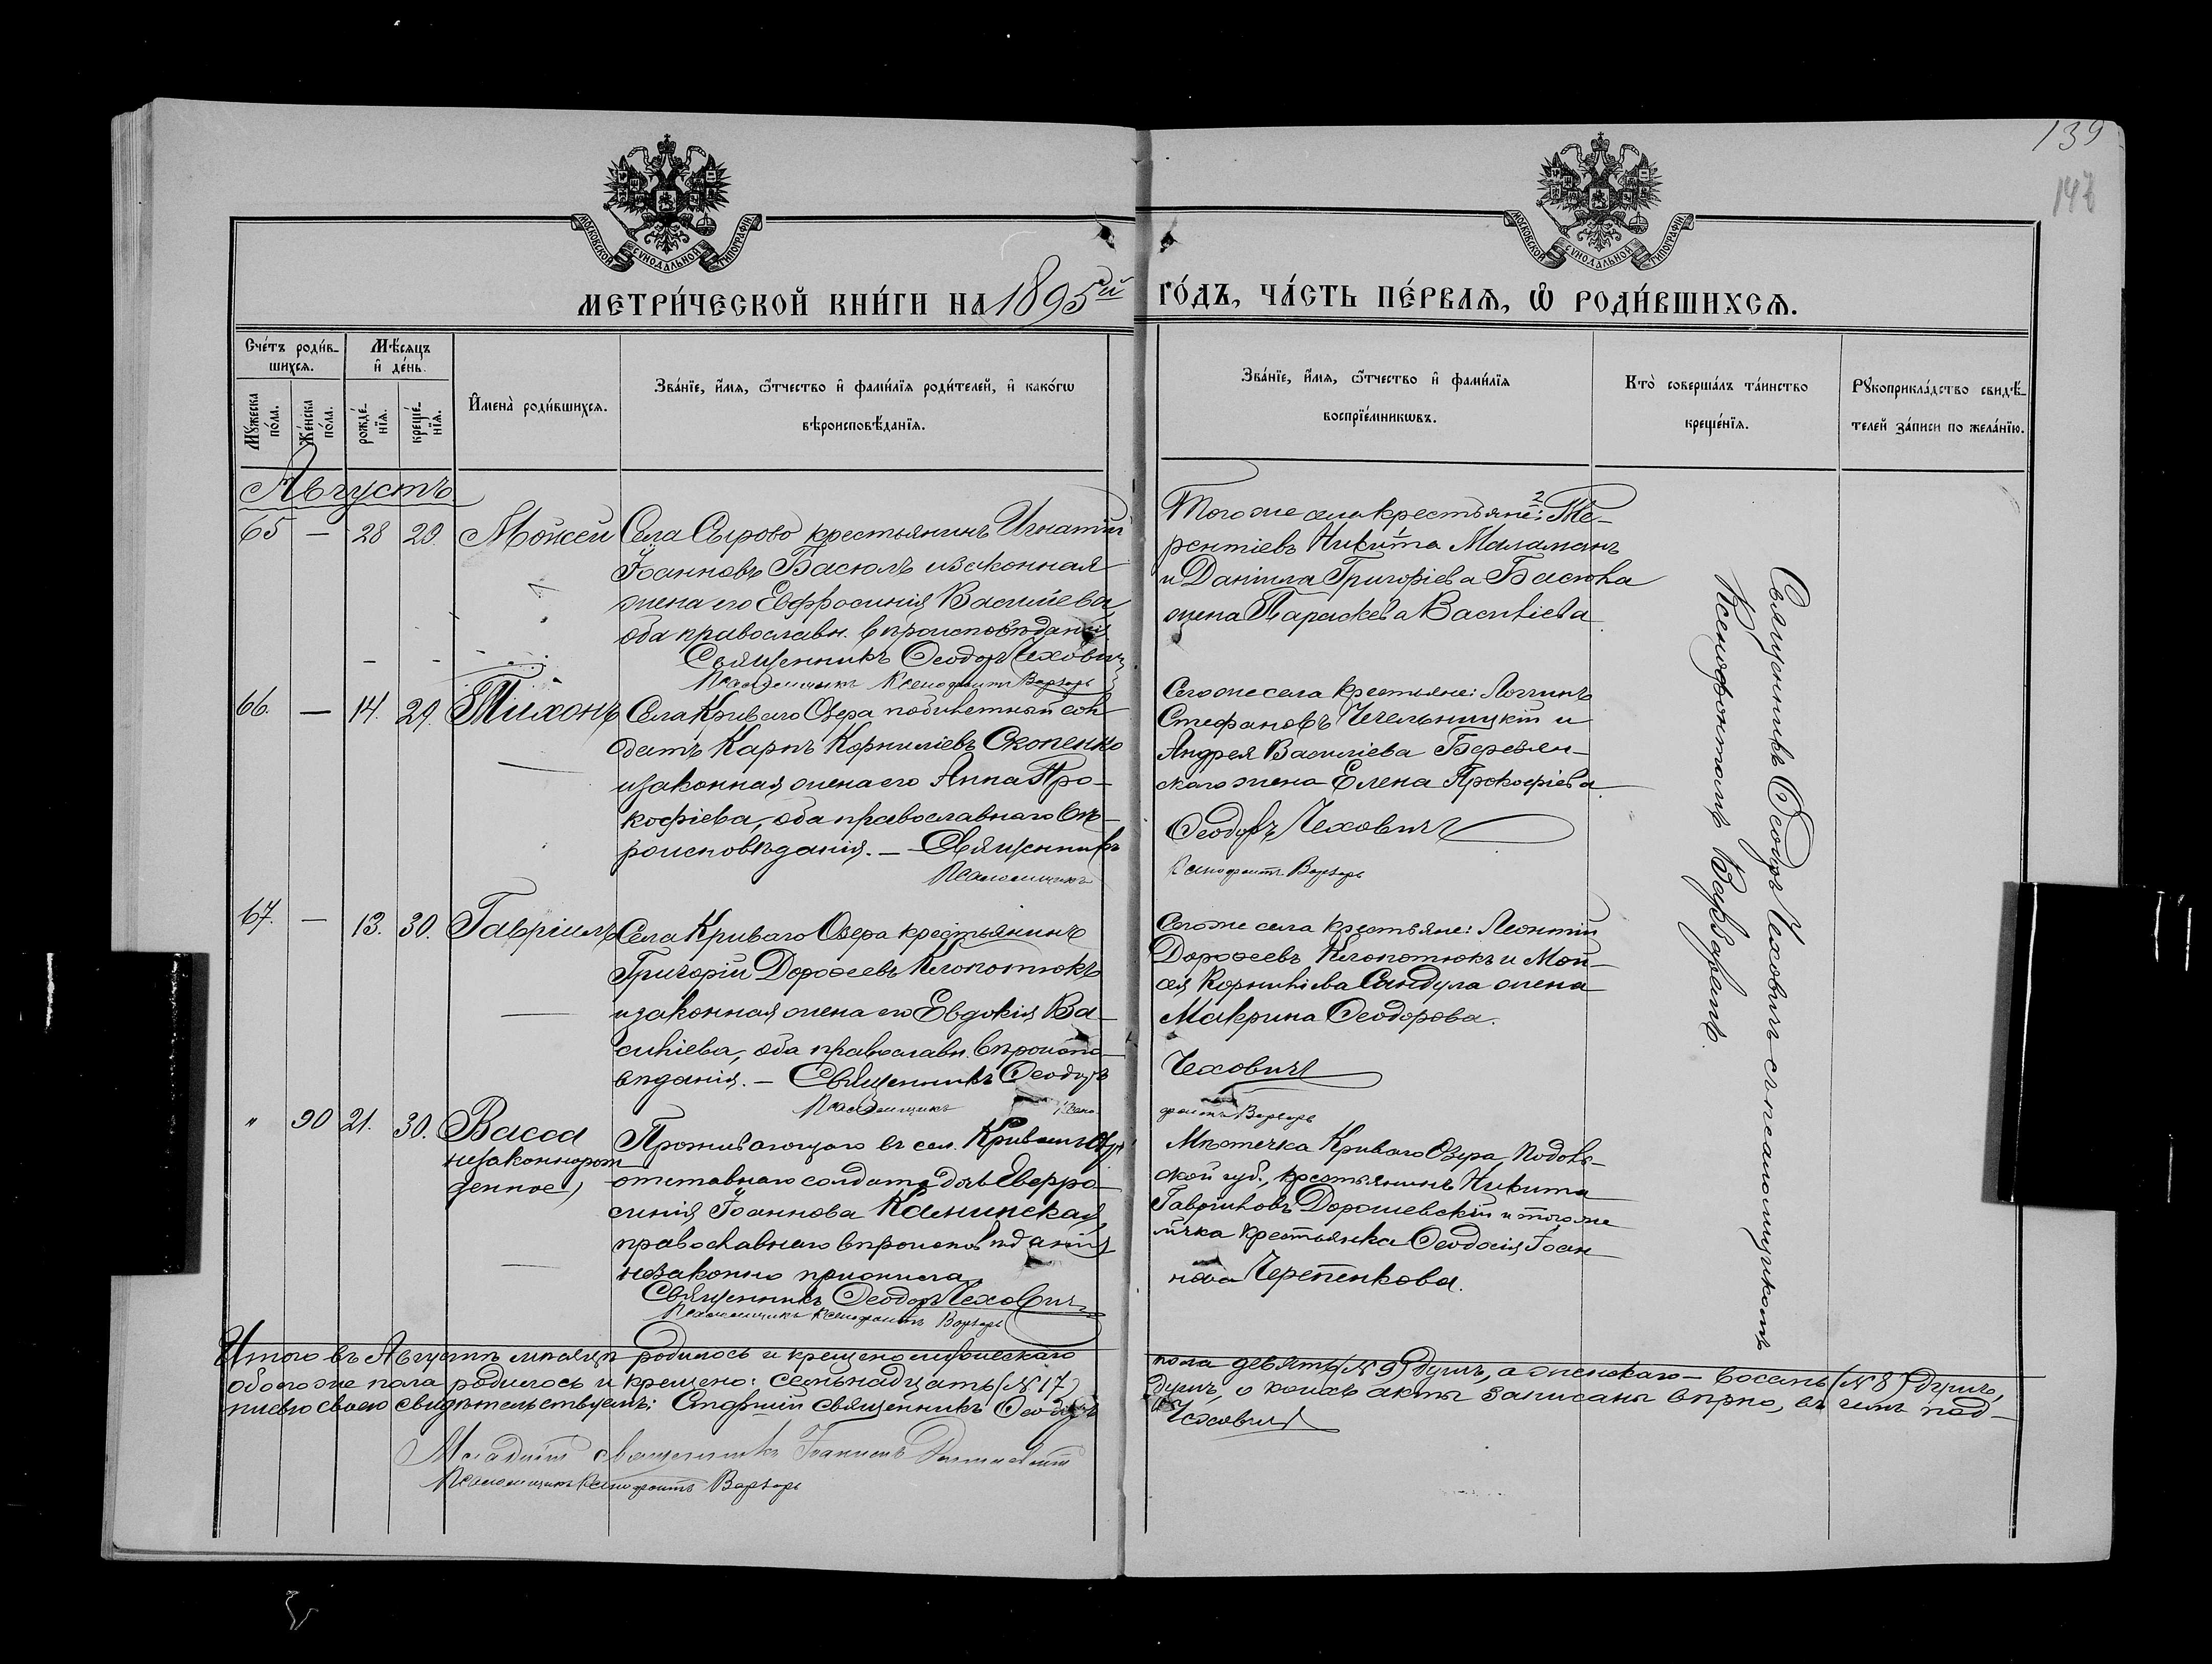 139
147
МОСКОВСКОЙ СѴНОДАЛЬНОЙ ТИПОГРАФІИ
МОСКОВСКОЙ СѴНОДАЛЬНОЙ ТИПОГРАФІИ
МЕТРИ́ЧЕСКОЙ КНИ́ГИ НА 1895ый ГО́ДЪ, ЧА́СТЬ ПЕ́РВАѦ, Ѡ҆ РОДИ́ВШИХСѦ.
Сче́тъ роди́в-
шихсѧ.
Мꙋ́жеска по́ла.
Же́нска по́ла.
Мѣ́сѧцъ
и҆ де́нь.
рожде́-
нїѧ.
креще́-
нїѧ.
И҆мена̀ роди́вшихсѧ.
Зва́нїе, и҆́мѧ, ѻ҆́тчество и҆ фами́лїѧ роди́телей, и҆ како́гѡ
вѣроисповѣ́данїѧ.
Зва́нїе, и҆́мѧ, ѻ҆́тчество и҆ фами́лїѧ
воспрїе́мникѡвъ.
Кто̀ соверша́лъ та́инство
креще́нїѧ.
Рꙋкоприкла́дство свидѣ́-
телей за́писи по жела́нїю.
Августъ
65 — 28 29. Мойсей
Села Сырово крестьянинъ Игнатій
Іоанновъ Басюлъ и законная
жена его Евфросинія Васильева
оба православн. вѣроисповѣданія
Священникъ Ѳеодоръ Чеховичъ
Псаломщикъ Ксенофонтъ Варзарь
Того же села крестьяне: Те-
рентіевъ Никита Маламанъ
и Даніила Григоріева Басюка
жена Параскева Василіева
66. — 14. 29. Тихонъ
Села Криваго Озера побилетный сол
датъ Карпъ Корниліевъ Скопенко
и законная жена его Анна Про-
кофіева, оба православнаго вѣ-
роисповѣданія. — Священникъ
Псаломщикъ
Сего же села крестьяне: Логгинъ
Стефановъ Чечельницкій и
Андрея Василіева Березян-
скаго жена Елена Прокофіева
Ѳеодоръ Чеховичъ
Ксенофонтъ Варзарь
67. — 13. 30. Гавріилъ
Села Криваго Озера крестьянинъ
Григорій Дороѳеевъ Клопотюкъ
и законная жена его Евдокія Ва-
силіева, оба православн. вѣроиспо-
вѣданія. — Священникъ Ѳеодоръ
Псаломщикъ Ксено-
Сего же села крестьяне: Леонтій
Дороѳеевъ Клопотюкъ и Мой-
сея Корниліева Сандула жена
Макрина Ѳеодорова.
Чеховичъ
фонтъ Варзарь
" 90 21. 30. Васса
незаконнорож
денное)
Проживающаго въ сел. Кривомъ Озерѣ
отставнаго солдата дочь Евфро-
синія Іоаннова Калинская
православнаго вѣроисповѣданія
незаконно прижила
Священникъ Ѳеодоръ Чеховичъ
Псаломщикъ Ксенофонтъ Варзарь
Мѣстечка Криваго Озера, Подоль-
ской губ., крестьянинъ Никита
Гавриловъ Дорошевскій и того же
м-чка крестьянка Ѳеодосія Іоан-
нова Черепенкова.
Священникъ Ѳеодоръ Чеховичъ съ псаломщикомъ
Ксенофонтомъ Варзаремъ.
Итого въ Августѣ мѣсяцѣ родилось и крещено мужескаго пола девять (№ 9) душъ, а женскаго — восемь (№ 8) душъ,
обоего же пола родилось и крещено: семьнадцать (№ 17) душъ, о коихъ акты записаны вѣрно, въ чемъ под-
писью своею свидѣтельствуемъ: Старшій священникъ Ѳеодоръ Чеховичъ
Младшій священникъ
Псаломщикъ Ксенофонтъ Варзарь